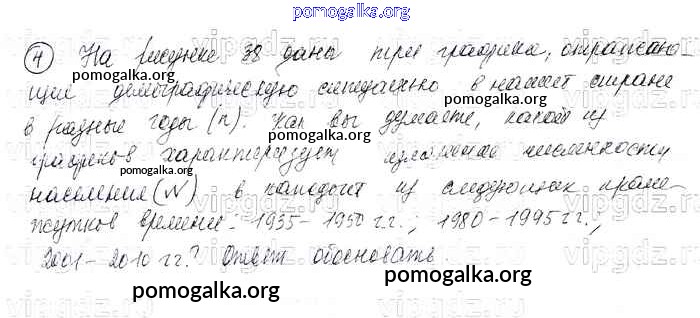 pomogalka.org
4 На рисунке 38 даны три графика, отражаю-
pomogalka.org
щие демографическую ситуацию в нашей стране
pomogalka.org
в разные годы (n). Как вы думаете, какой из
pomogalka.org
графиков характеризует изменение численности
pomogalka.org
населения (N) в каждый из следующих проме-
жутков времени: 1935-1950 г.г.; 1980-1995 г.г.;
2001-2010 г.г.? Ответ обосновать.
pomogalka.org
pomogalka.org
vipgdz.com